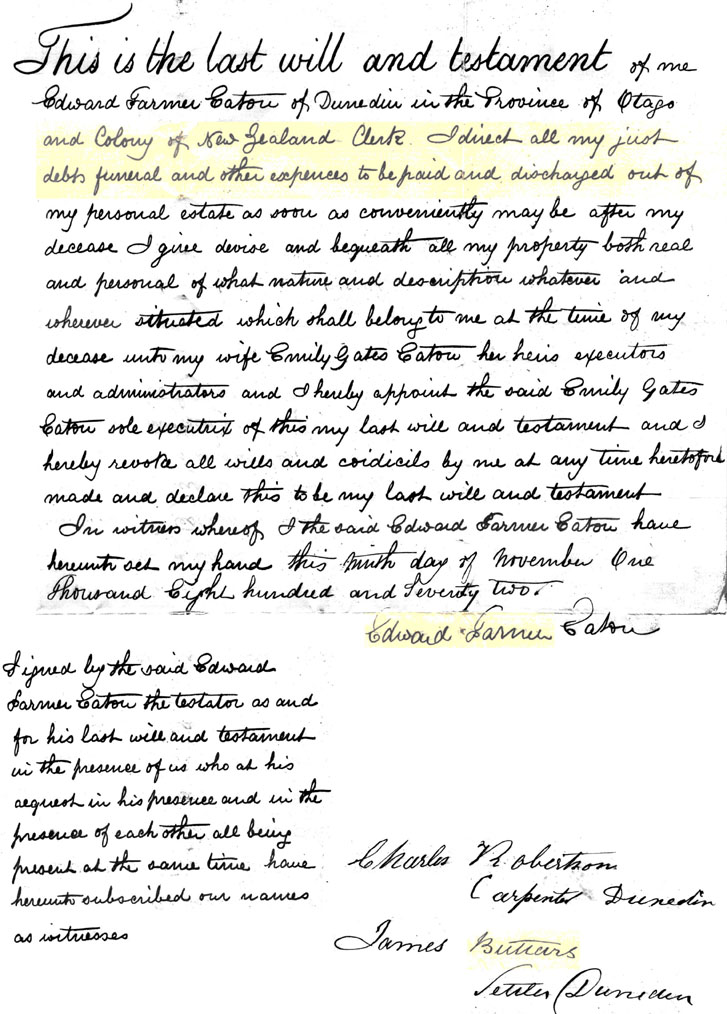 This is the last will and testament of me
Edward Farmer Eaton of Dunedin in the Province of Otago
and Colony of New Zealand Clerk I direct all my just
debts funeral and other expences to be paid and discharged out of
my personal estate as soon as conveniently may be after my
decease I give devise and bequeath all my property both real
and personal of what nature and description whatever and
wherever situated which shall belong to me at the time of my
decease unto my wife Emily Gates Eaton her heirs executors
and administrators and I hereby appoint the said Emily Gates
Eaton sole executrix of this my last will and testament and I
hereby revoke all wills and coidicils by me at any time heretofore
made and declare this to be my last will and testament
In witness whereof I the said Edward Farmer Eaton have
hereunto set my hand this Ninth day of November One
Thousand Eight hundred and Seventy two.
Edward Farmer Eaton
Signed by the said Edward
Farmer Eaton the testator as and
for his last will and testament
in the presence of us who at his
request in his presence and in the
presence of each other all being
present at the same time have
hereunto subscribed our names
as witnesses
Charles Robertson
Carpenter Dunedin
James Buttars
Settler Dunedin